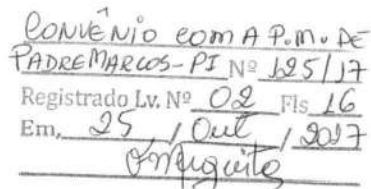 CONVÊNIO COM A P.M. DE
PADRE MARCOS-PI Nº 125/17
Registrado Lv. Nº 02 Fls 16
Em, 25 / Out / 2017